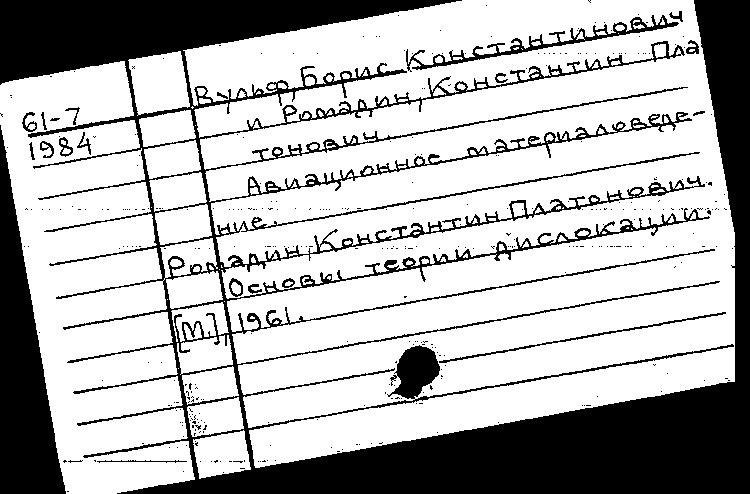 Вульф, Борис Константинович
61-7
и Ромадин, Константин Пла
1984
тонович.
Авиационное материаловеде-
ние.
Ромадин, Константин Платонович.
Основы теории дислокации.
[М.], 1961.